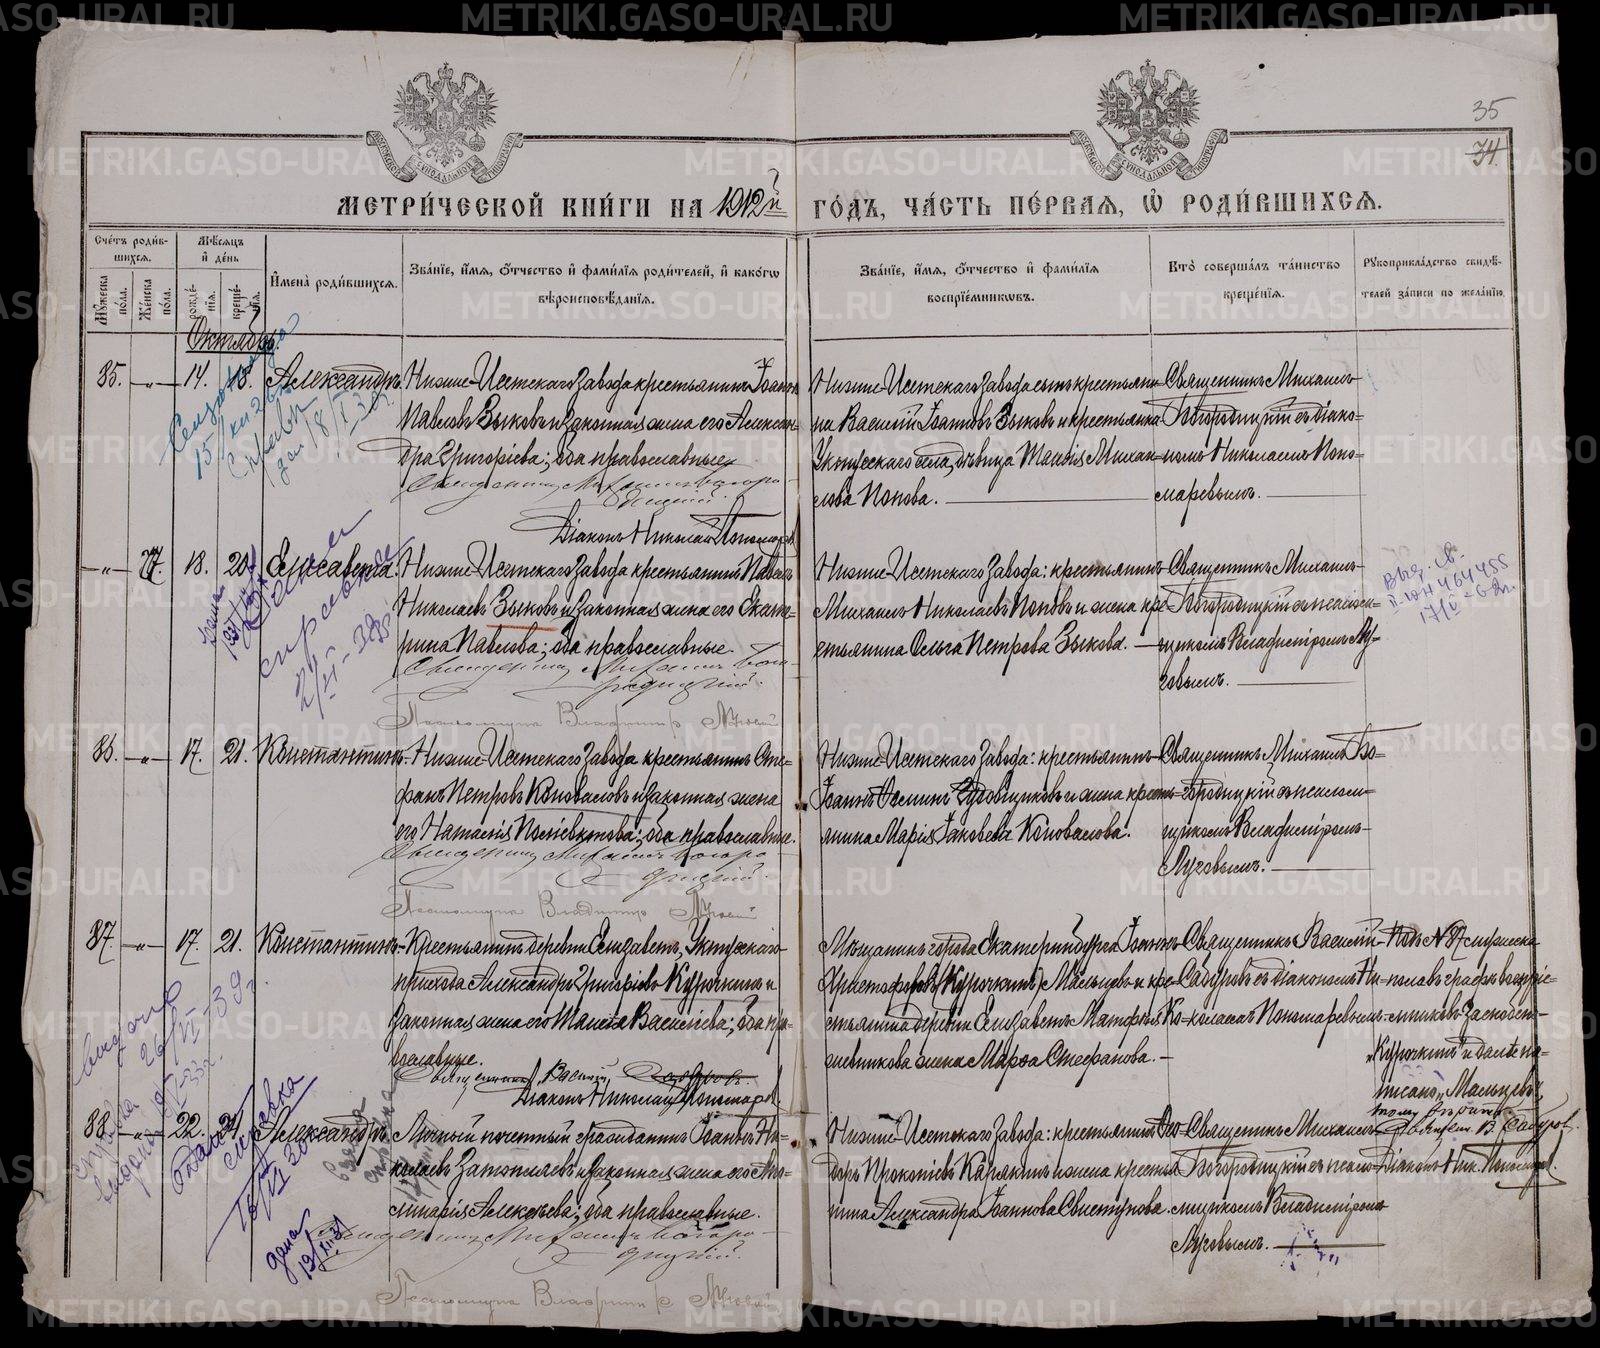 35
34
МЕТРИ́ЧЕСКОЙ КНИ́ГИ НА 1912й ГО́ДЪ, ЧА́СТЬ ПЕ́РВАЯ, Ѡ҆ РОДИ́ВШИХСЯ.
Сче́тъ роди́вшихся.
Мꙋ́жеска по́ла.
Же́нска по́ла.
Мѣ́сяцъ и҆ де́нь
рожде́нїя.
креще́нїя.
И҆мена̀ роди́вшихся.
Зва́нїе, и҆́мя, ѻ҆́тчество и҆ фами́лїя роди́телей, и҆ како́гѡ вѣроисповѣ́данїя.
Зва́нїе, и҆́мя, ѻ҆́тчество и҆ фами́лїя воспрїе́мниковъ.
Кто̀ соверша́лъ та́инство креще́нїя.
Рꙋкоприкла́дство свидѣ́телей за́писи по жела́нїю.
Октябрь.
85. —„— 14. 18. Александръ.
Нижне-Исетскаго завода крестьянинъ Іоаннъ
Павловъ Зыковъ и законная жена его Алексан-
дра Григоріева; оба православные.
Священникъ Михаилъ Богоро-
дицкій.
Діаконъ Николай Пономаревъ
Нижне-Исетскаго завода сынъ крестьяни-
на Василій Іоанновъ Зыковъ и крестьянка
Уктусскаго села, дѣвица Марія Михаи-
лова Попова.
Священникъ Михаилъ
Богородицкій съ діако-
номъ Николаемъ Поно-
маревымъ.
—„— 77. 18. 20. Елисавета.
Нижне-Исетскаго завода крестьянинъ Павелъ
Николаевъ Зыковъ и законная жена его Екате-
рина Павлова; оба православные.
Священникъ Михаилъ Бого-
родицкій.
Псаломщикъ Владимиръ Луговый
Нижне-Исетскаго завода: крестьянинъ
Михаилъ Николаевъ Поповъ и жена кре-
стьянина Ольга Петрова Зыкова.
Священникъ Михаилъ
Богородицкій съ псалом-
щикомъ Владимиромъ Лу-
говымъ.
Выд. св.
II-ЮН 464455
17/V-62г.
86. —„— 17. 21. Константинъ.
Нижне-Исетскаго завода крестьянинъ Сте-
фанъ Петровъ Коноваловъ и законная жена
его Наталія Поліевктова; оба православные.
Священникъ Михаилъ Богоро-
дицкій.
Псаломщикъ Владимиръ Луговый
Нижне-Исетскаго завода: крестьянинъ
Іоаннъ Ѳоминъ Чудовщиковъ и жена кресть-
янина Марія Іаковлева Коновалова.
Священникъ Михаилъ Бо-
городицкій съ псалом-
щикомъ Владимиромъ
Луговымъ.
87. —„— 17. 21. Константинъ.
Крестьянинъ деревни Елизаветъ, Уктусскаго
прихода Александръ Григоріевъ Курочкинъ и
законная жена его Василіева; оба пра-
вославные.
Священникъ Василій Сабуровъ.
Діаконъ Николай Пономаревъ
Мѣщанинъ города Екатеринбурга Іоаннъ
Христофоровъ (Курочкинъ) Мальцевъ и кре-
стьянина деревни Елизаветъ Матѳея Ко-
жевникова жена Марѳа Стефанова.
Священникъ Василій
Сабуровъ съ діакономъ Ни-
колаемъ Пономаревымъ.
Подъ №87 мужеска
пола въ графѣ воспріе-
мниковъ въ скобкахъ
„Курочкинъ“ и далѣе на-
писано „Мальцевъ“
Священ. В. Сабуровъ.
Діаконъ Ник. Пономаревъ.
88. —„— 22. 24. Александръ.
Личный почетный гражданинъ Іоаннъ Ни-
колаевъ Затопляевъ и законная жена его Апо-
линарія Алексѣева; оба православные.
Священникъ Михаилъ Богоро-
дицкій.
Псаломщикъ Владимиръ Луговый
Нижне-Исетскаго завода: крестьянинъ Ѳео-
доръ Прокопіевъ Карякинъ и жена крестья-
нина Александра Іоаннова Свистунова.
Священникъ Михаилъ
Богородицкій съ псало-
мщикомъ Владимиромъ
Луговымъ.
METRIKI.GASO-URAL.RU